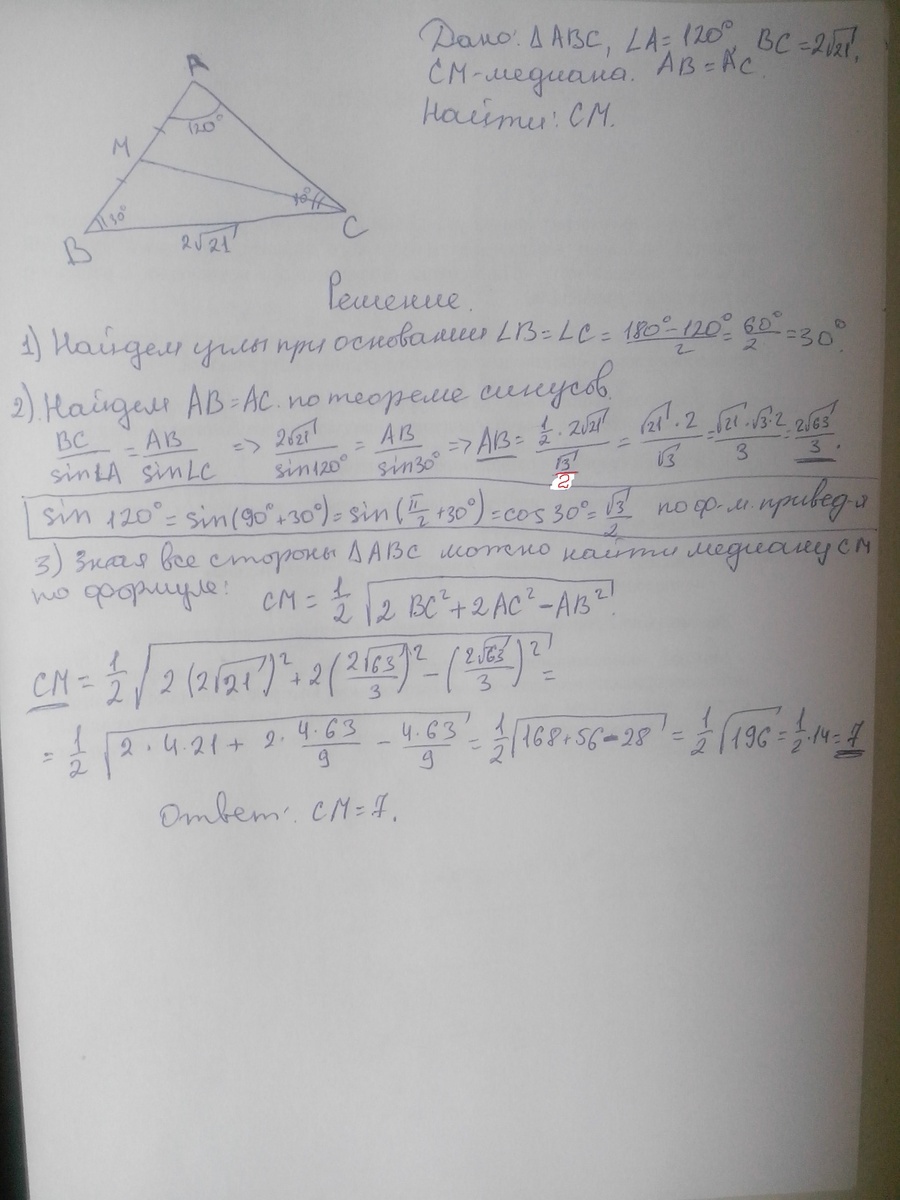 Дано: ΔABC, ∠A = 120°, BC = 2√21,
CM-медиана. AB = AC.
Найти: CM.
A
120°
M
30°
30°
B
C
2√21
Решение.
1) Найдем углы при основании ∠B = ∠C = (180° - 120°)/2 = 60°/2 = 30°.
2). Найдем AB = AC. по теореме синусов.
BC/sin∠A = AB/sin∠C => 2√21/sin120° = AB/sin30° => AB = (1/2 · 2√21)/(√3/2) = √21 · 2/√3 = √21 · √3 · 2/3 = 2√63/3.
sin 120° = sin(90° + 30°) = sin(π/2 + 30°) = cos 30° = √3/2 по ф-м. привед-я
3) Зная все стороны ΔABC можно найти медиану CM
по формуле: CM = 1/2 √(2 BC² + 2AC² - AB²).
CM = 1/2 √(2 (2√21)² + 2(2√63/3)² - (2√63/3)²) =
= 1/2 √(2 · 4 · 21 + 2 · 4·63/9 - 4·63/9) = 1/2 √(168 + 56 - 28) = 1/2 √196 = 1/2 · 14 = 7
Ответ: CM = 7.